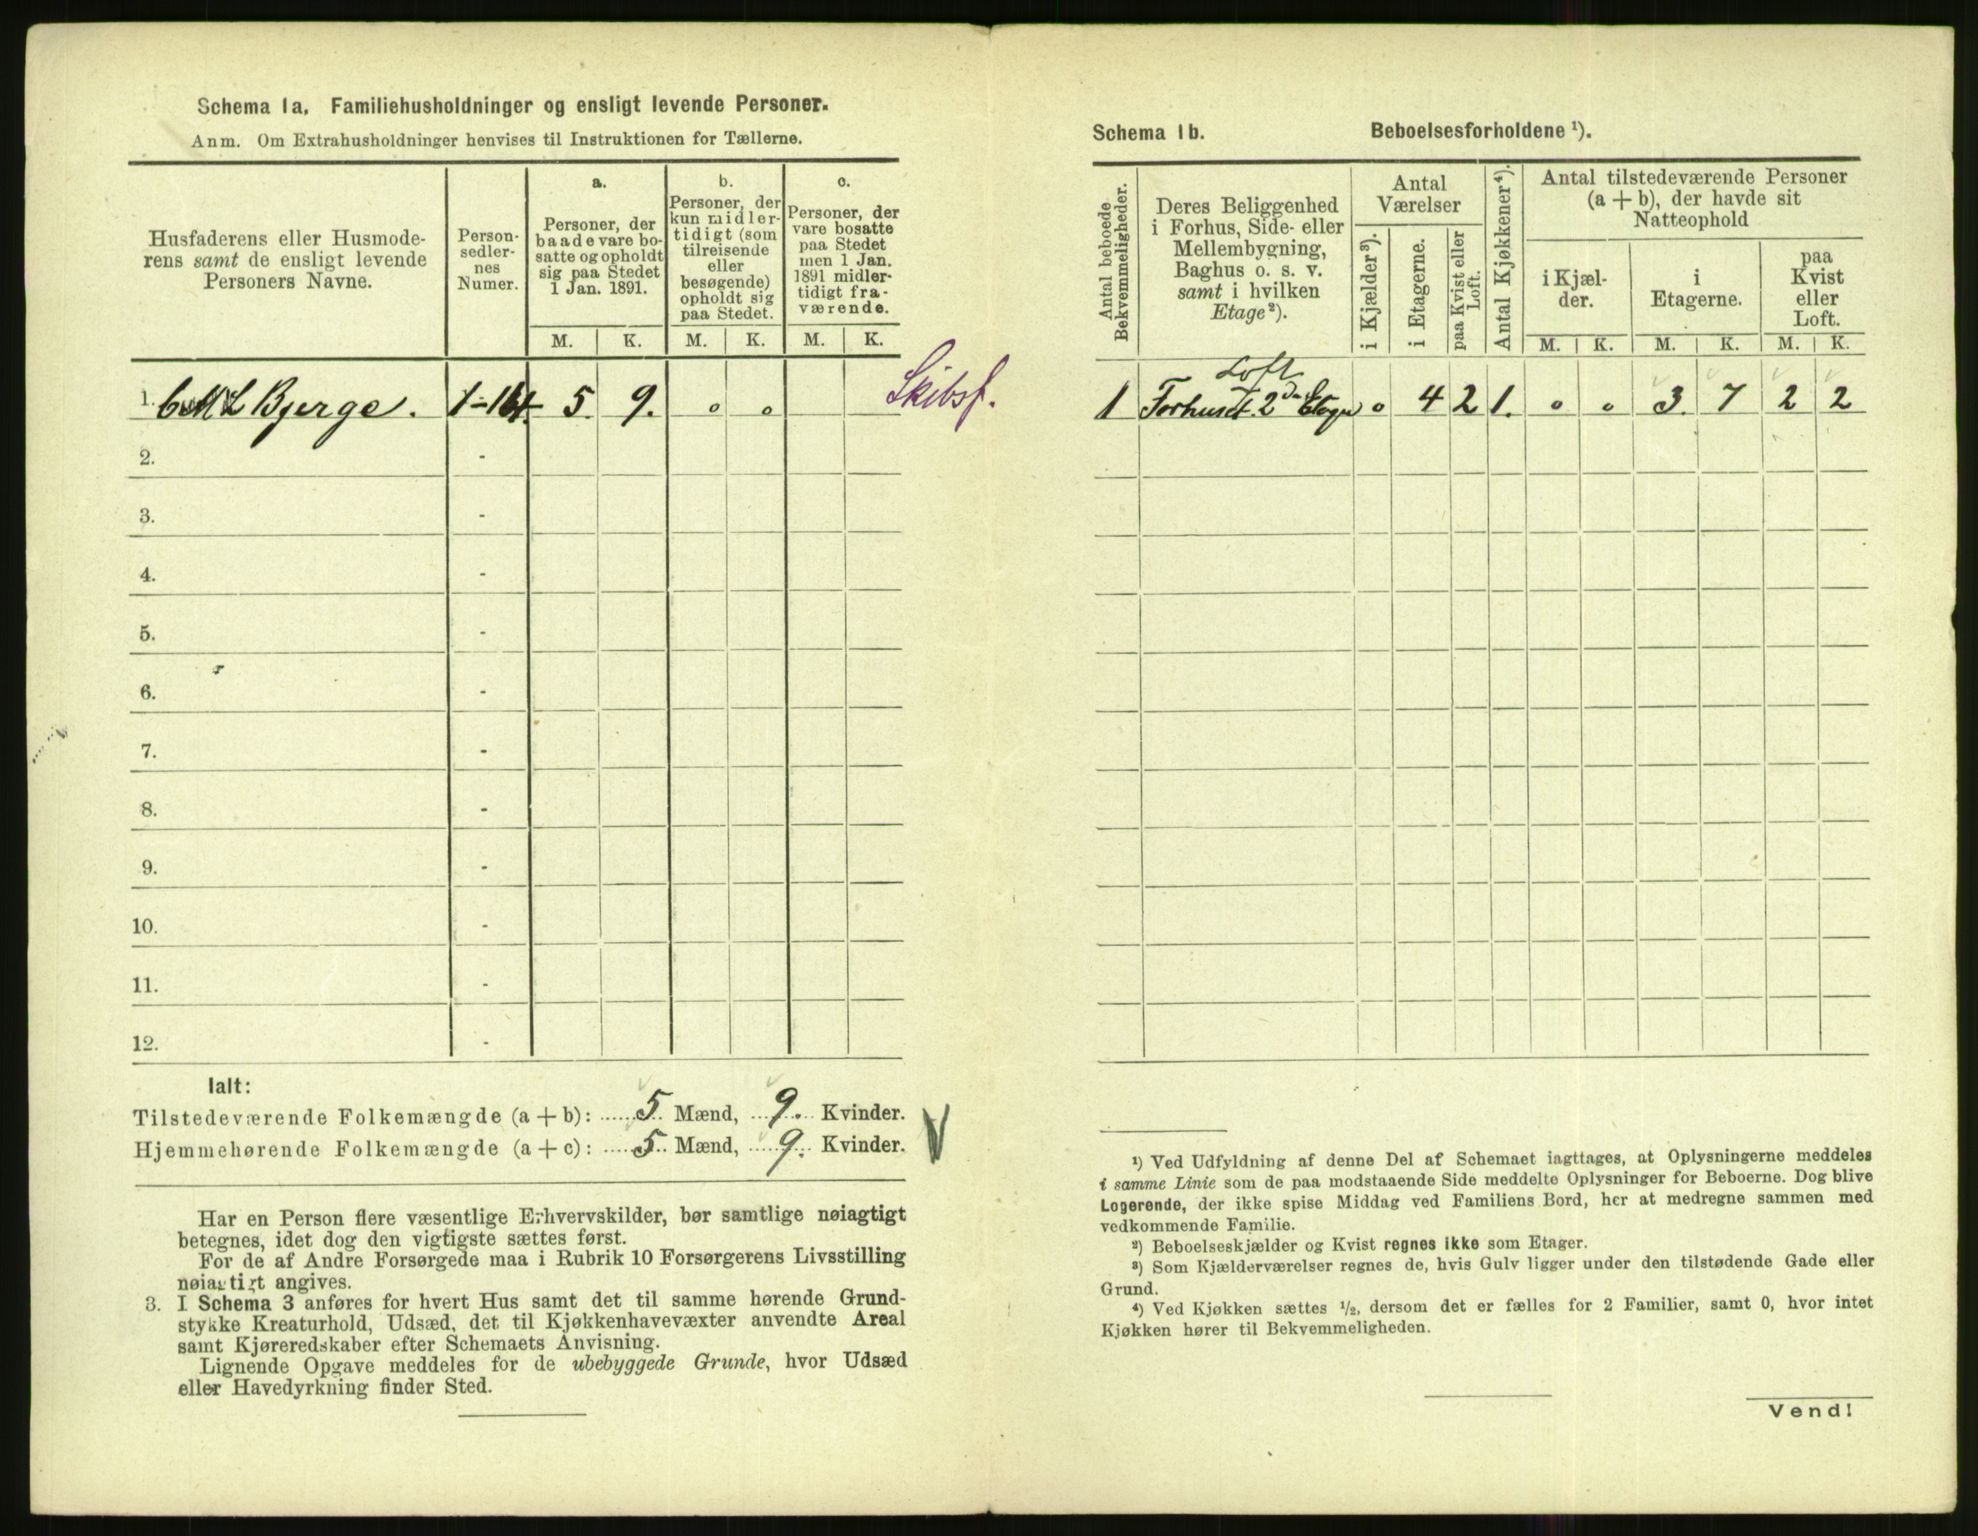 Schema 1a. Familiehusholdninger og ensligt levende Personer.
Anm. Om Extrahusholdninger henvises til Instruktionen for Tællerne.
Husfaderens eller Husmode-
rens samt de ensligt levende
Personers Navne.
Person-
sedler-
nes
Numer.
a.
Personer, der
baade vare bo-
satte og opholdt
sig paa Stedet
1 Jan. 1891.
b.
Personer, der
kun midler-
tidigt (som
tilreisende
eller
besøgende)
opholdt sig
paa Stedet.
c.
Personer, der
vare bosatte
paa Stedet
men 1 Jan.
1891 midler-
tidigt fra-
værende.
M. K. M. K. M. K.
1. Bjerge. 1-14 5. 9. 0 0 Skibsf.
2. -
3. -
4. -
5. -
6. -
7. -
8. -
9. -
10. -
11. -
12. -
Ialt:
Tilstedeværende Folkemængde (a + b): 5 Mænd, 9. Kvinder.
Hjemmehørende Folkemængde (a + c): 5 Mænd, 9. Kvinder.
Har en Person flere væsentlige Erhvervskilder, bør samtlige nøiagtigt
betegnes, idet dog den vigtigste sættes først.
For de af Andre Forsørgede maa i Rubrik 10 Forsørgerens Livsstilling
nøiagtigt angives.
3. I Schema 3 anføres for hvert Hus samt det til samme hørende Grund-
stykke Kreaturhold, Udsæd, det til Kjøkkenhavevæxter anvendte Areal
samt Kjøreredskaber efter Schemaets Anvisning.
Lignende Opgave meddeles for de ubebyggede Grunde, hvor Udsæd
eller Havedyrkning finder Sted.
Schema 1b. Beboelsesforholdene ¹).
Antal beboede
Bekvemmeligheder.
Deres Beliggenhed
i Forhus, Side- eller
Mellembygning,
Baghus o. s. v.
samt i hvilken
Etage²).
Antal
Værelser
i Kjælder³).
i Etagerne.
paa Kvist eller
Loft.
Antal Kjøkkener⁴).
Antal tilstedeværende Personer
(a + b), der havde sit
Natteophold
i Kjæl-
der.
i
Etagerne.
paa
Kvist
eller
Loft.
M. K. M. K. M. K.
Loft
1 Forhuset 2den Etage 0 4 2 1. 0 0 3. 7 2 2
¹) Ved Udfyldning af denne Del af Schemaet iagttages, at Oplysningerne meddeles
i samme Linie som de paa modstaaende Side meddelte Oplysninger for Beboerne. Dog blive
Logerende, der ikke spise Middag ved Familiens Bord, her at medregne sammen med
vedkommende Familie.
²) Beboelseskjælder og Kvist regnes ikke som Etager.
³) Som Kjælderværelser regnes de, hvis Gulv ligger under den tilstødende Gade eller
Grund.
⁴) Ved Kjøkken sættes ½, dersom det er fælles for 2 Familier, samt 0, hvor intet
Kjøkken hører til Bekvemmeligheden.
Vend!